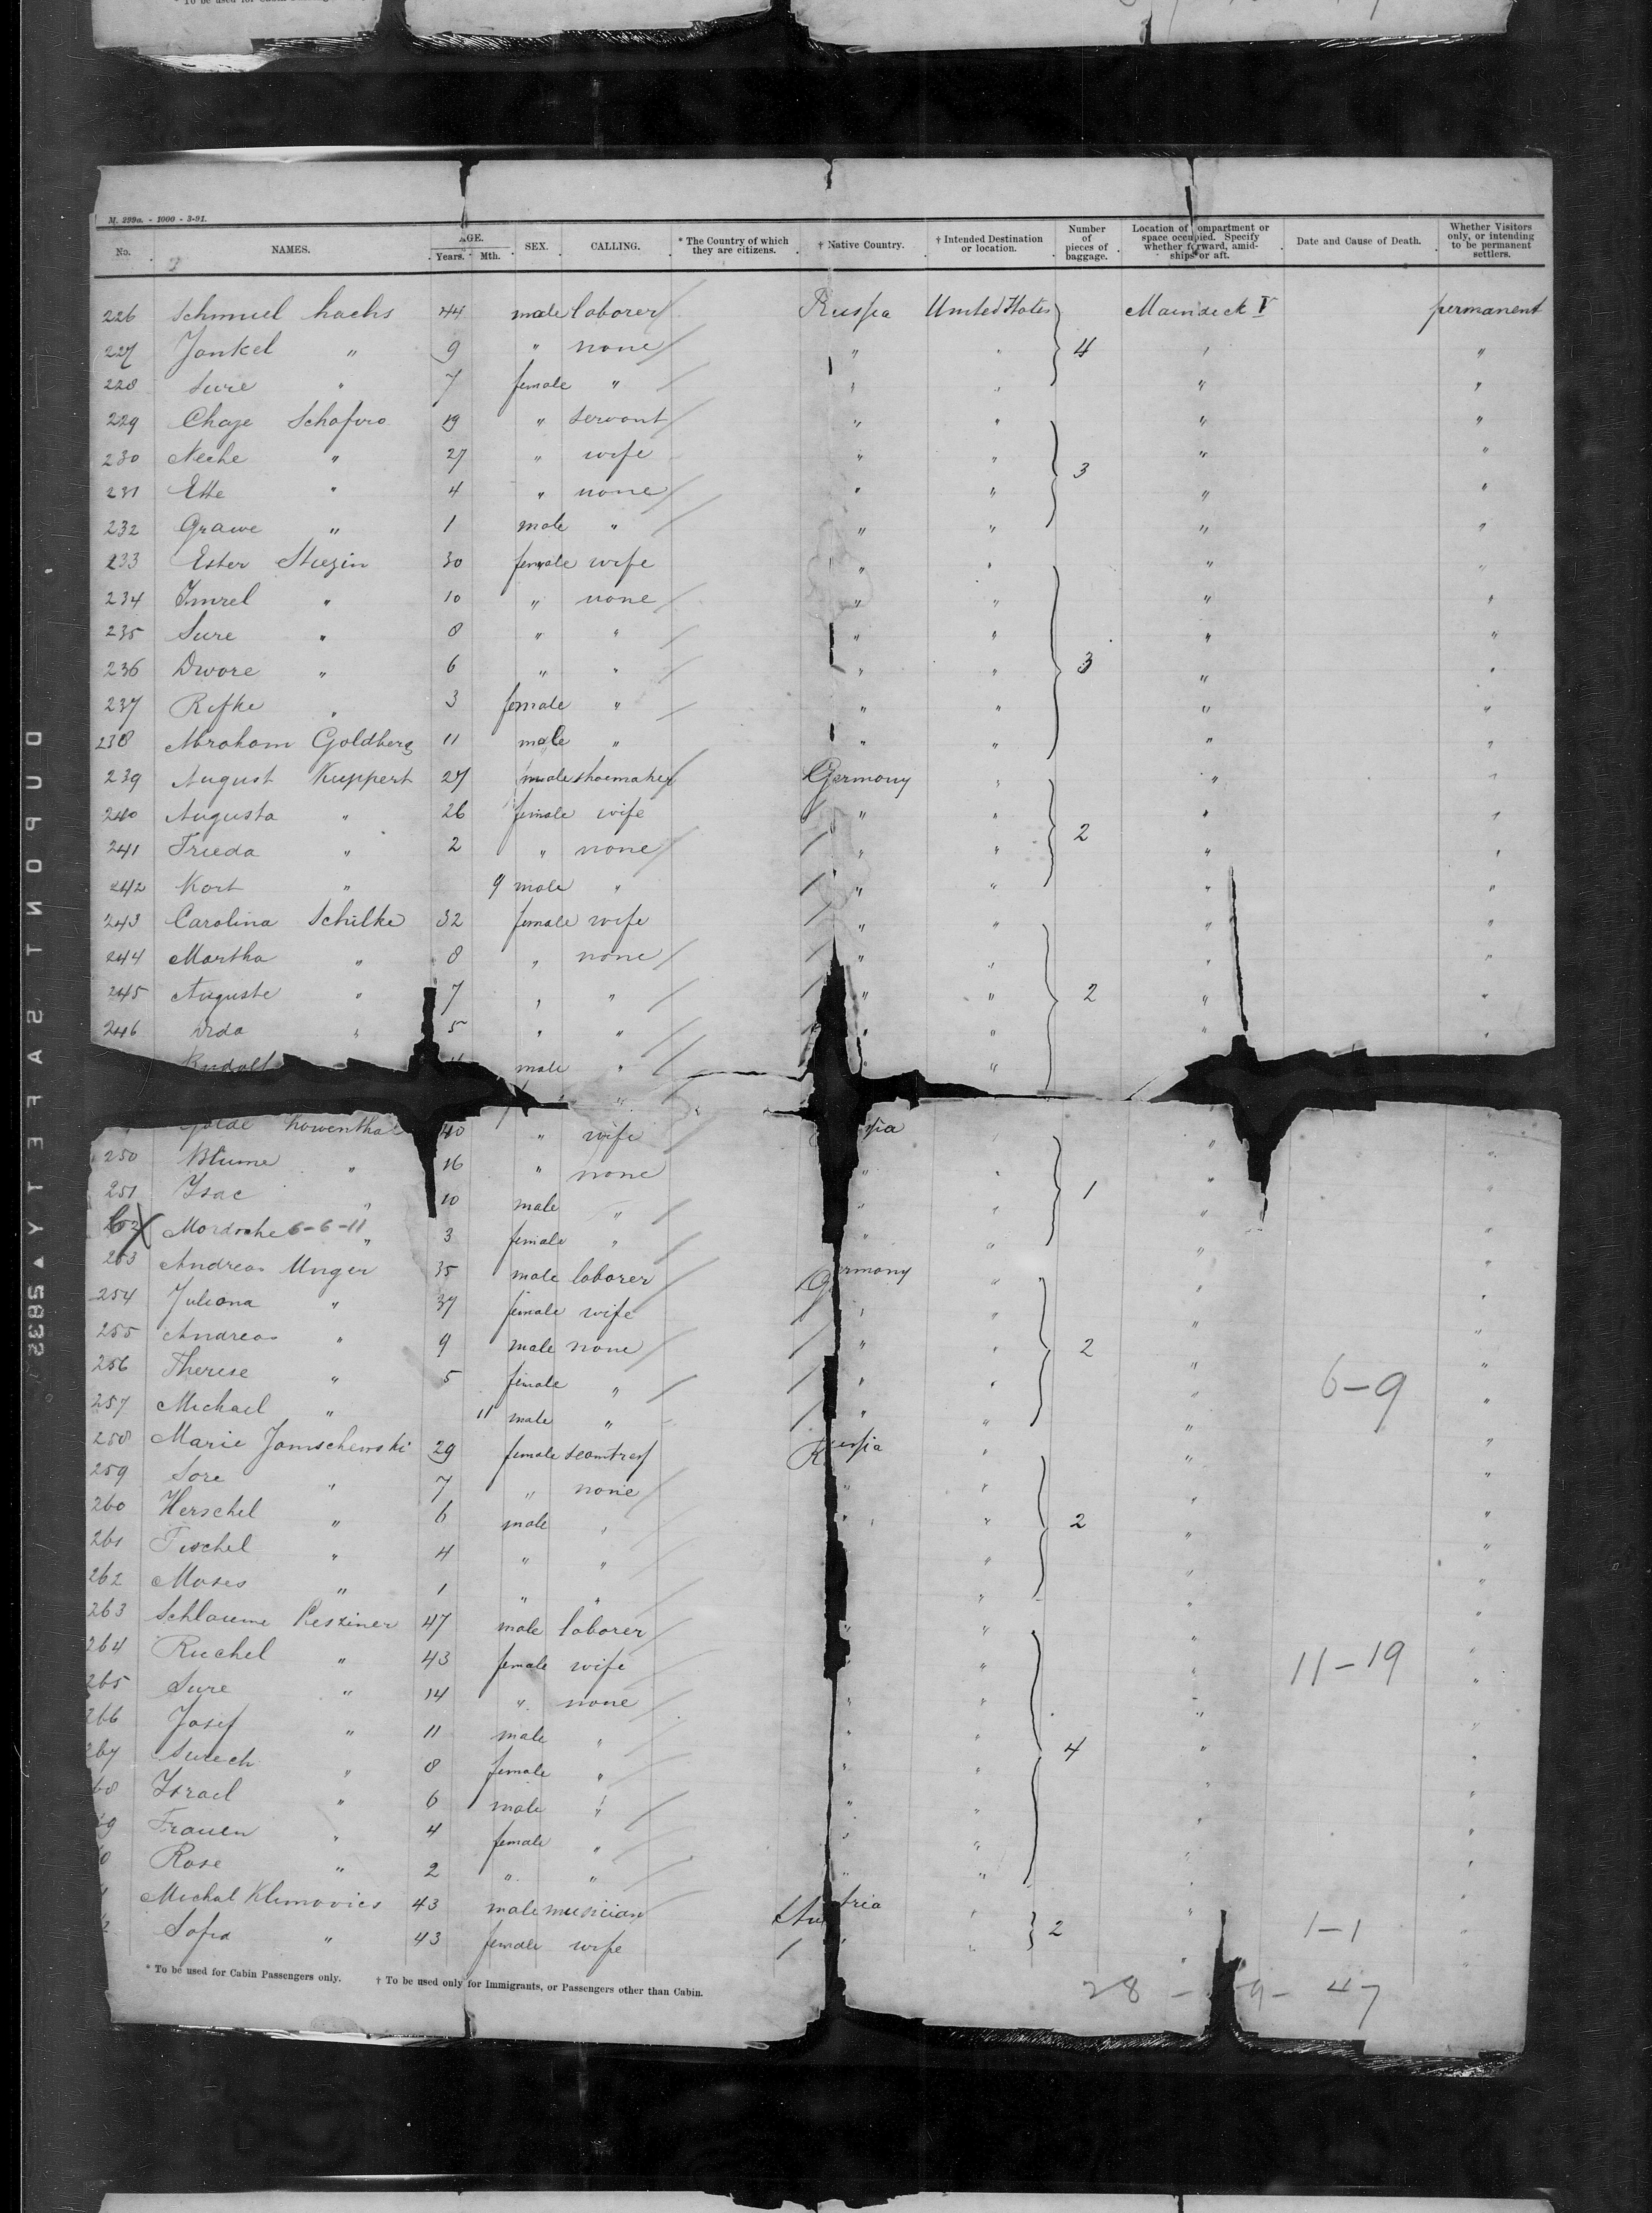 M. 299a. - 1000 - 3-91.
No. NAMES. AGE. Years. Mth. SEX. CALLING. * The Country of which they are citizens. † Native Country. † Intended Destination or location. Number of pieces of baggage. Location of compartment or space occupied. Specify whether forward, amidships or aft. Date and Cause of Death. Whether Visitors only, or intending to be permanent settlers.
226 Schmuel Sachs 44 male laborer Russia United States Maindeck V permanent
227 Jankel " 9 " none " " 4 " "
228 Sure " 7 female " " " " "
229 Chaje Schapiro 19 " servant " " " "
230 Neche " 27 " wife " " 3 " "
231 Ette " 4 " none " " " "
232 Grawe " 1 male " " " " "
233 Ester 30 female wife " " " "
234 " 10 " none " " " "
235 Sure " 8 " " " " " "
236 Dwore " 6 " " " " 3 " "
237 Rifke " 3 female " " " " "
238 Abraham Goldberg 11 male " " " " "
239 August Kuppert 27 male shoemaker Germany " " "
240 Augusta " 26 female wife " " " "
241 Frieda " 2 " none " " 2 " "
242 Kort " 9 male " " " " "
243 Carolina Schilke 32 female wife " " " "
244 Martha " 8 " none " " " "
245 Auguste " 7 " " " " 2 " "
246 Ida " 5 " " " " " "
Rudolf male " " "
"
Golde Lowenthal 40 " wife " "
250 Blume " 16 " none " " " "
251 Isac " 10 male " " " 1 " "
252 Mordsche 6-6-11 " 3 female " " " " "
253 Andreas Unger 35 male laborer Germany " " "
254 Juliana " 37 female wife " " " "
255 Andreas " 9 male none " " 2 " "
256 Therese " 5 female " " " " 6-9 "
257 Michael " 11 male " " " " "
258 Marie Jamschewski 29 female seamtress Russia " " "
259 Sore " 7 " none " " " "
260 Herschel " 6 male " " " 2 " "
261 Fischel " 4 " " " " "
262 Moses " 1 " " " " "
263 Schlaume Resziner 47 male laborer " " " "
264 Ruchel " 43 female wife " " 11-19 "
265 Sure " 14 " none " " " "
266 Josef " 11 male " " " "
267 " 8 female " " " 4 " "
68 Israel " 6 male " " " " "
69 Frauen " 4 female " " " " "
0 Rose " 2 " " " " " "
Michal Klimovics 43 male musician Austria " 2 " 1-1 "
Sofia " 43 female wife " " " "
* To be used for Cabin Passengers only. † To be used only for Immigrants, or Passengers other than Cabin.
28 - 9 - 47
DUPONT SAFETY 5832